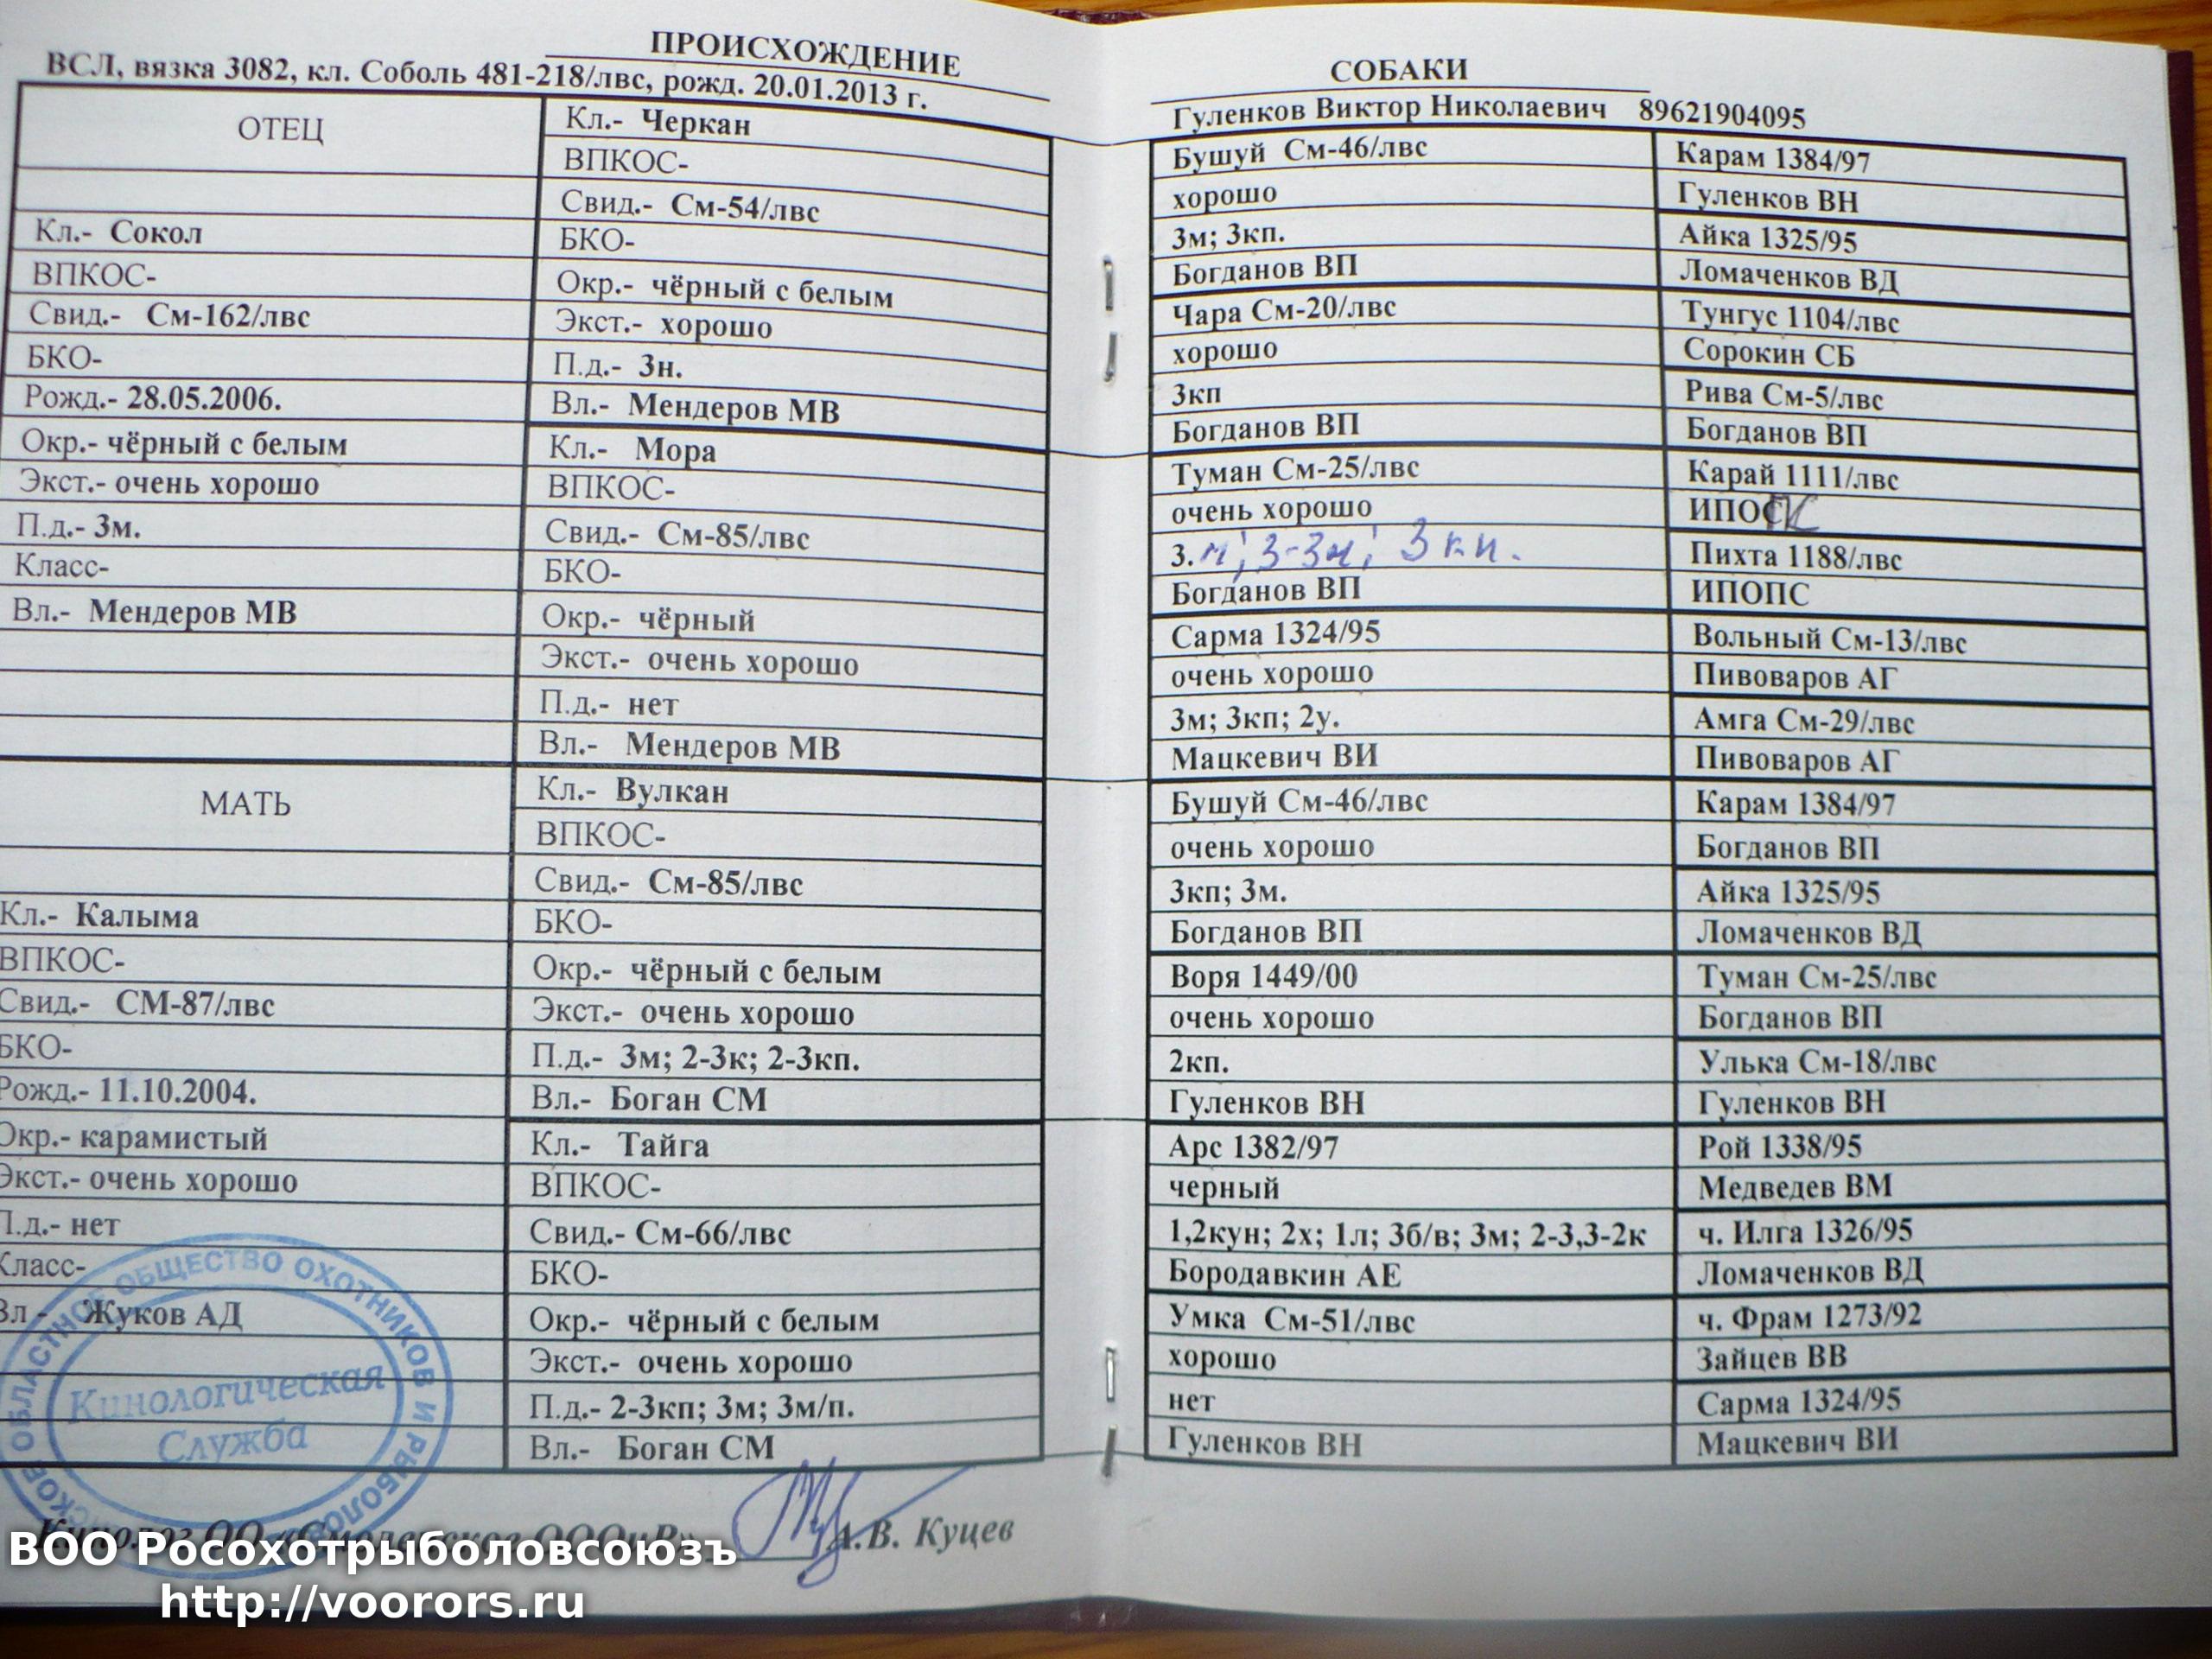 ПРОИСХОЖДЕНИЕ
ВСЛ, вязка 3082, кл. Соболь 481-218/лвс, рожд. 20.01.2013 г.
ОТЕЦ
Кл.- Сокол
ВПКОС-
Свид.- См-162/лвс
БКО-
Рожд.- 28.05.2006.
Окр.- чёрный с белым
Экст.- очень хорошо
П.д.- 3м.
Класс-
Вл.- Мендеров МВ
МАТЬ
Кл.- Калыма
ВПКОС-
Свид.- СМ-87/лвс
БКО-
Рожд.- 11.10.2004.
Окр.- карамистый
Экст.- очень хорошо
П.д.- нет
Класс-
Вл - Жуков АД
Кл.- Черкан
ВПКОС-
Свид.- См-54/лвс
БКО-
Окр.- чёрный с белым
Экст.- хорошо
П.д.- 3н.
Вл.- Мендеров МВ
Кл.- Мора
ВПКОС-
Свид.- См-85/лвс
БКО-
Окр.- чёрный
Экст.- очень хорошо
П.д.- нет
Вл.- Мендеров МВ
Кл.- Вулкан
ВПКОС-
Свид.- См-85/лвс
БКО-
Окр.- чёрный с белым
Экст.- очень хорошо
П.д.- 3м; 2-3к; 2-3кп.
Вл.- Боган СМ
Кл.- Тайга
ВПКОС-
Свид.- См-66/лвс
БКО-
Окр.- чёрный с белым
Экст.- очень хорошо
П.д.- 2-3кп; 3м; 3м/п.
Вл.- Боган СМ
ОБЛАСТНОЕ ОБЩЕСТВО ОХОТНИКОВ И РЫБОЛОВ
Кинологическая
Служба
А.В. Куцев
СОБАКИ
Гуленков Виктор Николаевич 89621904095
Бушуй См-46/лвс
хорошо
3м; 3кп.
Богданов ВП
Чара См-20/лвс
хорошо
3кп
Богданов ВП
Туман См-25/лвс
очень хорошо
3.м; 3-3к; 3кп.
Богданов ВП
Сарма 1324/95
очень хорошо
3м; 3кп; 2у.
Мацкевич ВИ
Бушуй См-46/лвс
очень хорошо
3кп; 3м.
Богданов ВП
Воря 1449/00
очень хорошо
2кп.
Гуленков ВН
Арс 1382/97
черный
1,2кун; 2х; 1л; 3б/в; 3м; 2-3,3-2к
Бородавкин АЕ
Умка См-51/лвс
хорошо
нет
Гуленков ВН
Карам 1384/97
Гуленков ВН
Айка 1325/95
Ломаченков ВД
Тунгус 1104/лвс
Сорокин СБ
Рива См-5/лвс
Богданов ВП
Карай 1111/лвс
Пихта 1188/лвс
ИПОПС
Вольный См-13/лвс
Пивоваров АГ
Амга См-29/лвс
Пивоваров АГ
Карам 1384/97
Богданов ВП
Айка 1325/95
Ломаченков ВД
Туман См-25/лвс
Богданов ВП
Улька См-18/лвс
Гуленков ВН
Рой 1338/95
Медведев ВМ
ч. Илга 1326/95
Ломаченков ВД
ч. Фрам 1273/92
Зайцев ВВ
Сарма 1324/95
Мацкевич ВИ
ВОО Росохотрыболовсоюзъ
http://voorors.ru